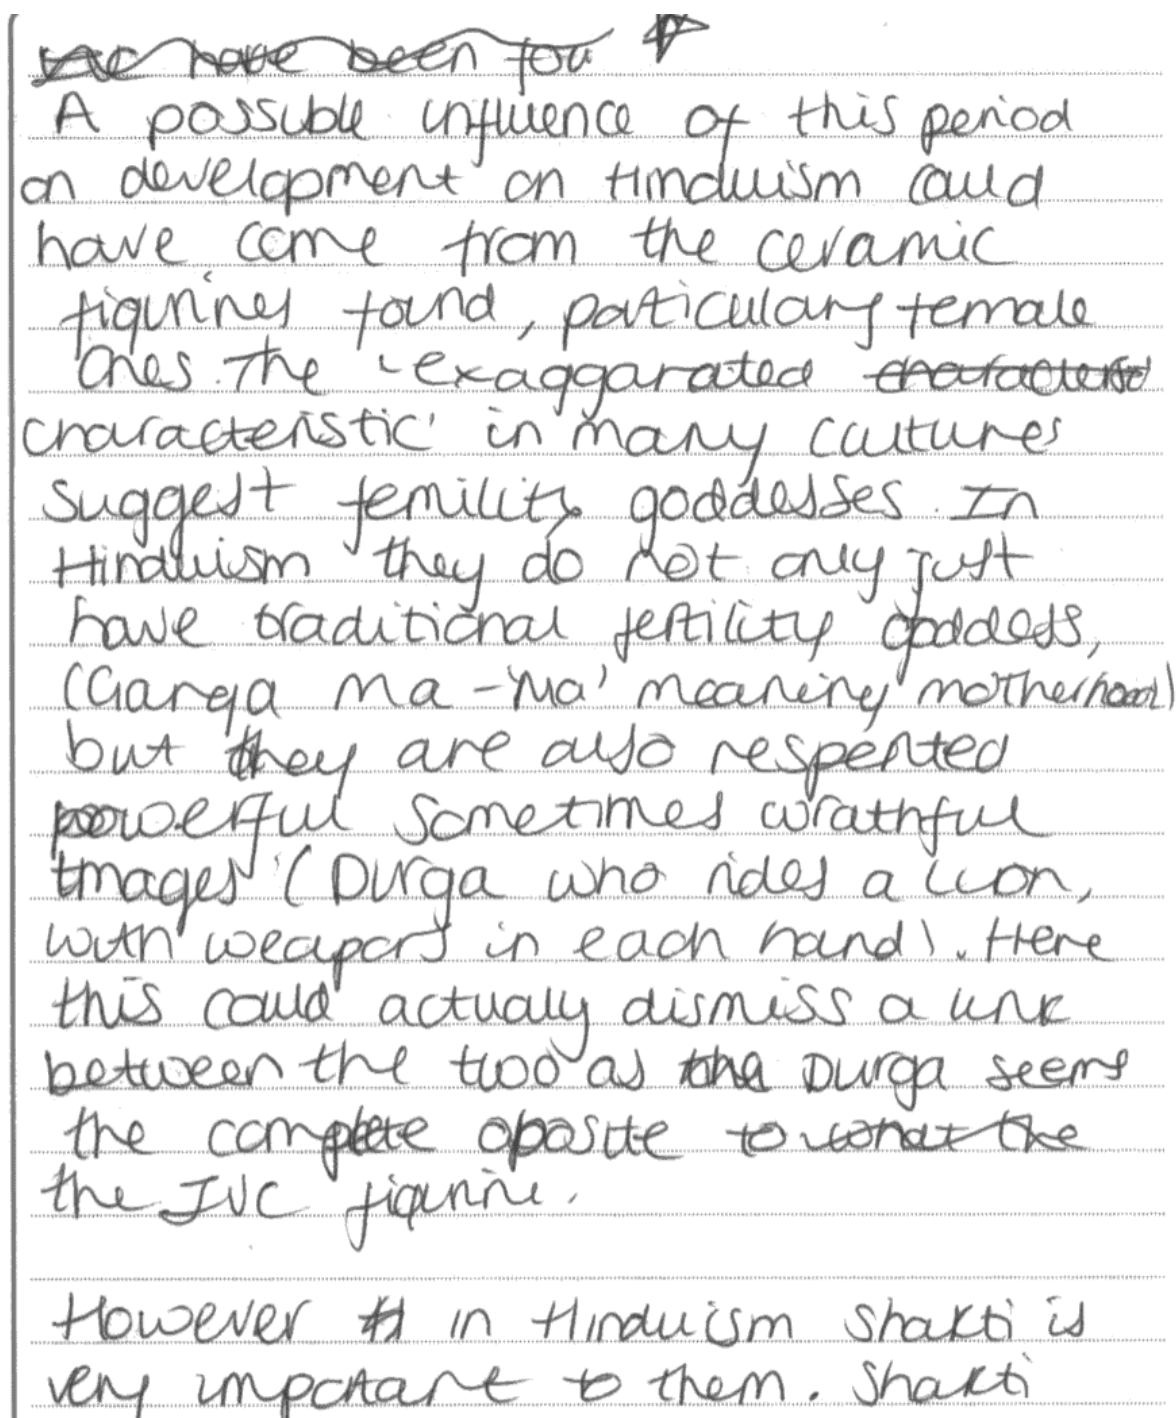 We have been fou
A possible influence of this period
on development on Hinduism could
have come from the ceramic
figurines found, particulary female
ones. The 'exaggarated characterist
characteristic' in many cultures
suggest femility goddesses. In
Hinduism they do not only just
have traditional fertility goddess,
(Ganga Ma - 'Ma' meaning motherhood)
but they are also respented
powerful sometimes wrathful
images (Durga who rides a lion,
with weapons in each hand). Here
this could actualy dismiss a link
between the two as the Durga seems
the complete oposite to what the
the IVC figurine.
However in Hinduism Shakti is
very important to them. Shakti